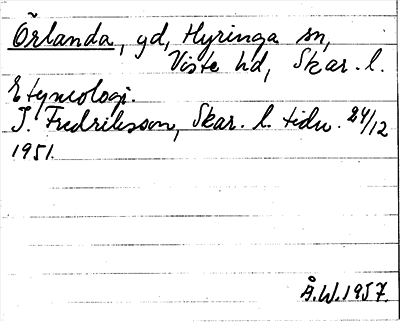 Örlanda, gd, Hyringa sn,
Viste hd, Skar. l.
Etymologi.
I. Fredriksson, Skar. l. tidn. 24/12
1951.
Å.W. 1957.